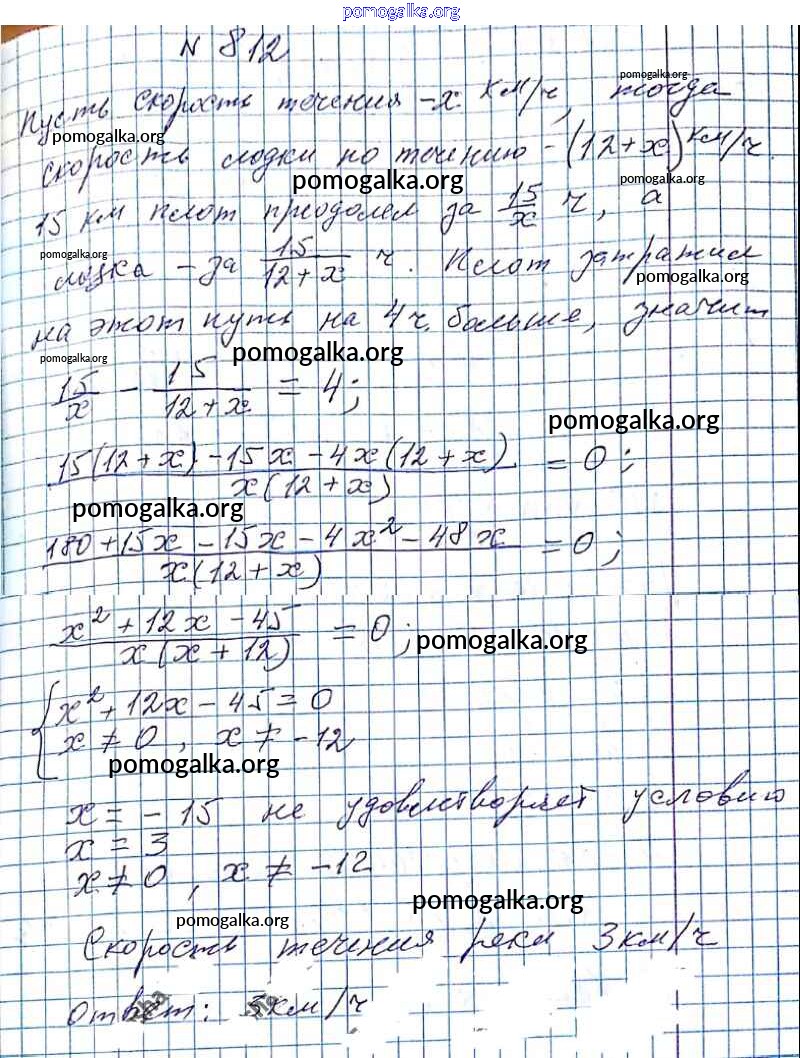 pomogalka.org
N 812
Пусть скорость течения - x км/ч, тогда
pomogalka.org
pomogalka.org
скорость лодки по течению - (12+x) км/ч.
pomogalka.org
pomogalka.org
15 км плот преодолел за 15/x ч, а
pomogalka.org
лодка - за 15/(12+x) ч. Плот затратил
pomogalka.org
на этот путь на 4 ч. больше, значит
pomogalka.org
pomogalka.org
15/x - 15/(12+x) = 4;
pomogalka.org
(15(12+x) - 15x - 4x(12+x))/(x(12+x)) = 0;
pomogalka.org
(180+15x - 15x - 4x² - 48x)/(x(12+x)) = 0;
(x² + 12x - 45)/(x(x+12)) = 0;
pomogalka.org
{ x² + 12x - 45 = 0
x ≠ 0, x ≠ -12
pomogalka.org
x = - 15 не удовлетворяет условию
x = 3
x ≠ 0, x ≠ -12
pomogalka.org
pomogalka.org
Скорость течения реки 3 км/ч
Ответ: 3 км/ч